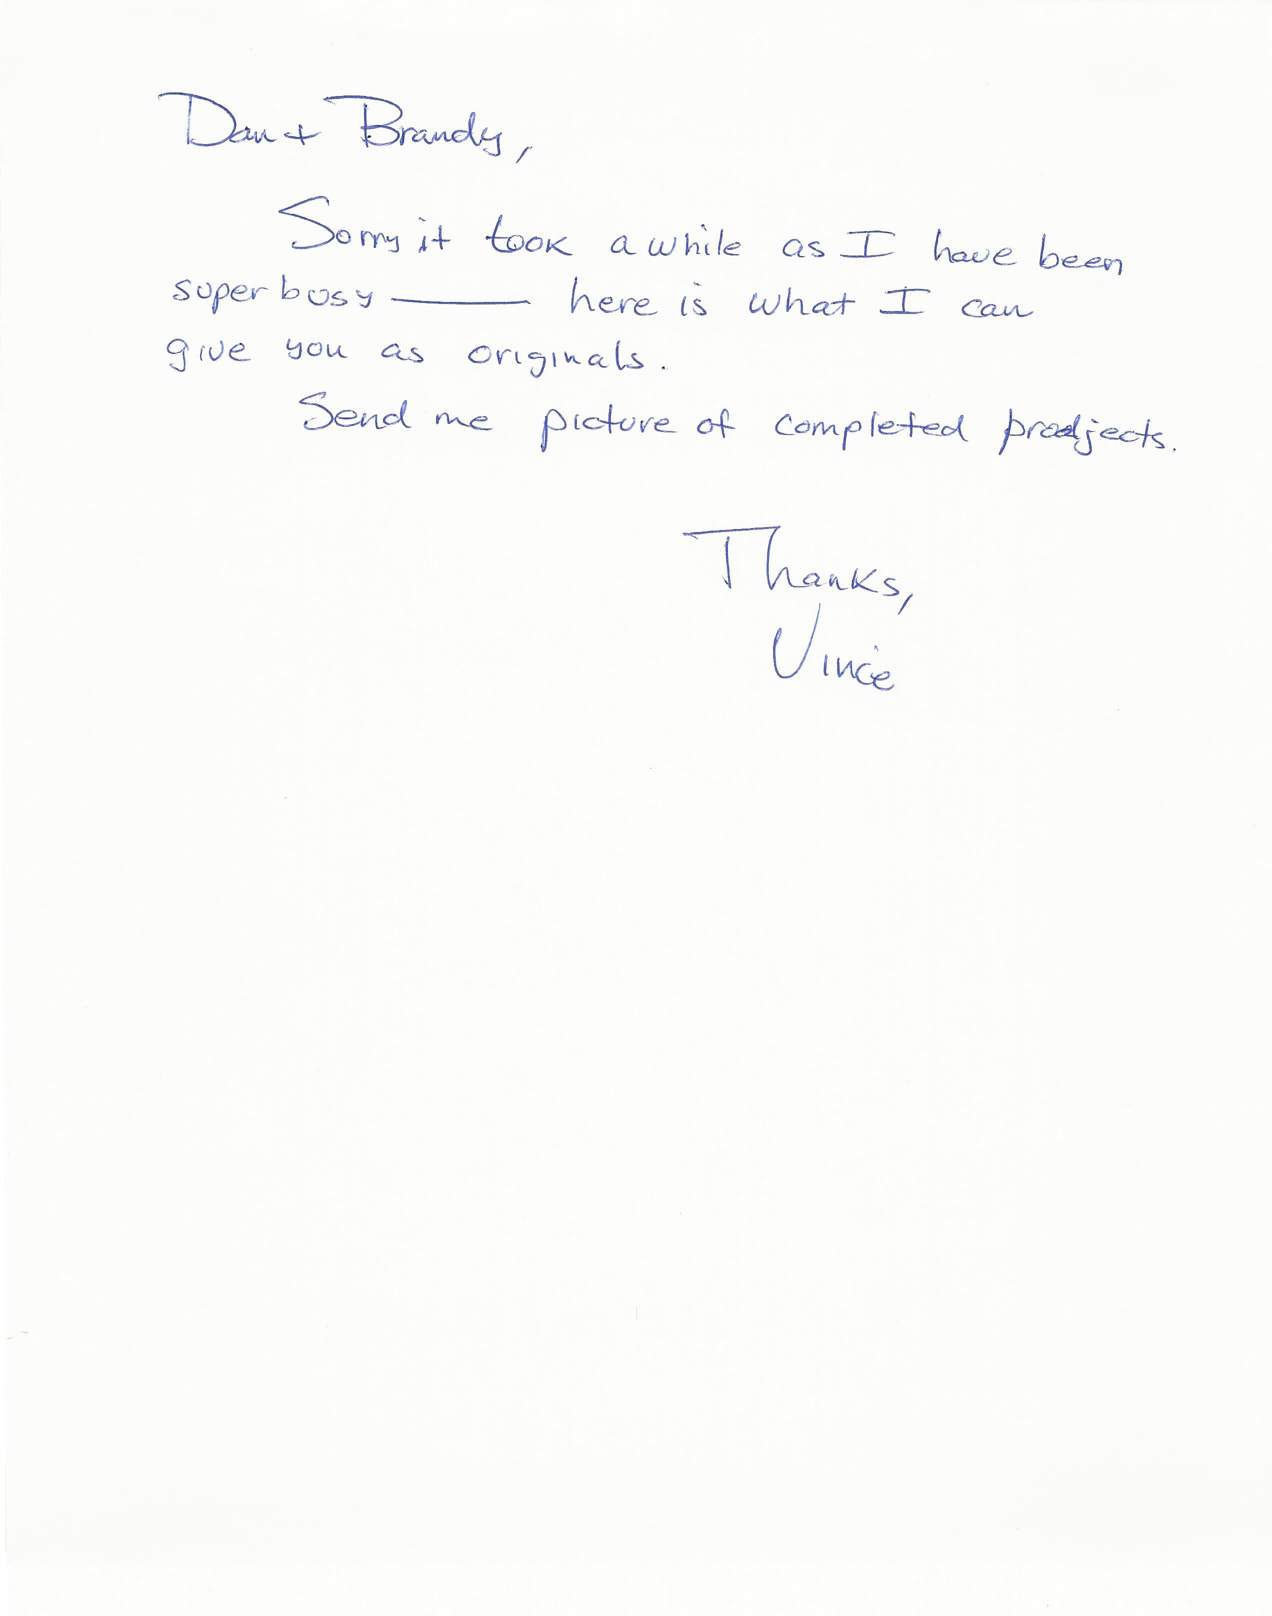 Dan + Brandy,
Sorry it took awhile as I have been
super busy — here is what I can
give you as originals.
Send me picture of completed prodjects.
Thanks,
Vince